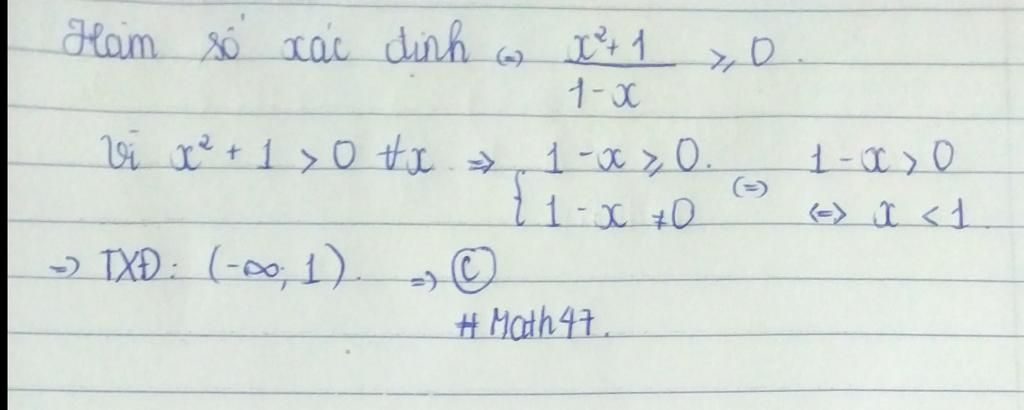 Hàm số xác định (=) x²+1 / 1-x ≥ 0.
Vì x² + 1 > 0 ∀x => { 1-x ≥ 0. 1-x ≠ 0 (=) 1-x > 0
<=> x < 1.
=> TXĐ: (-∞; 1). => Ⓒ
# Math47.